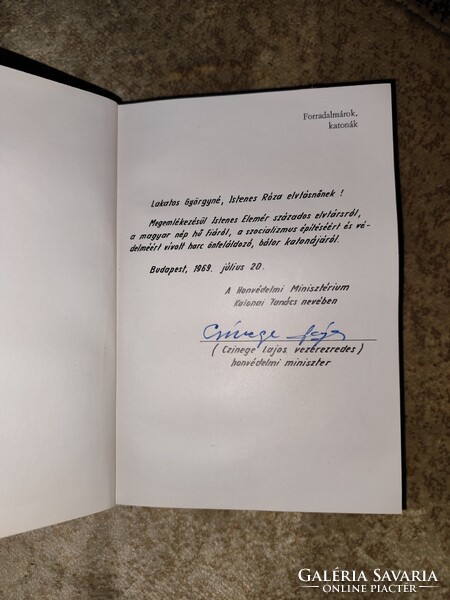 Forradalmárok,
katonák
Lakatos Györgyné, Istenes Róza elvtásnőnek !
Megemlékezésül Istenes Elemér százados elvtársról,
a magyar nép hű fiáról, a szocializmus építéséért és vé-
delméért vívott harc önfeláldozó, bátor katonájáról.
Budapest, 1969. július 20.
A Honvédelmi Minisztérium
Katonai Tanács nevében
Czinege Lajos
( Czinege Lajos vezérezredes )
honvédelmi miniszter
GALÉRIA SAVARIA
ONLINE PIACTÉR